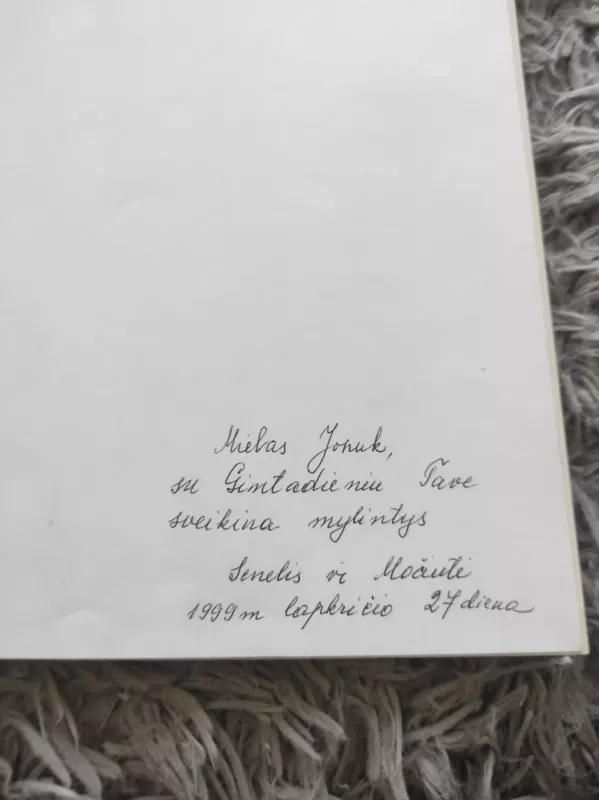 Mielas Jonuk,
su Gimtadieniu Tave
sveikina mylintys
Senelis ir Močiutė
1999m lapkričio 27 diena